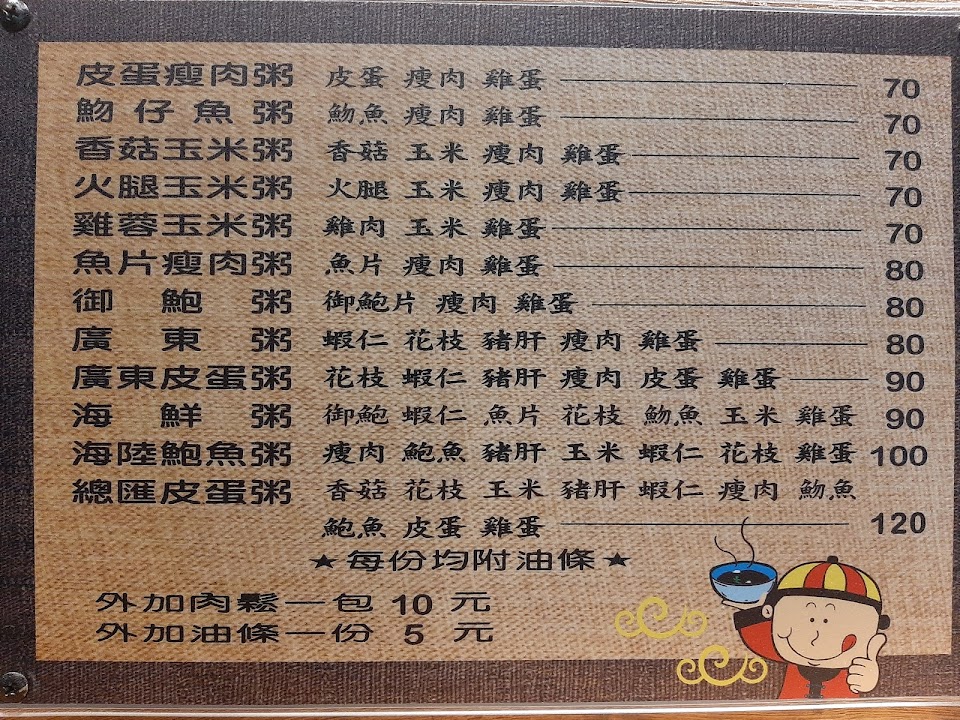 皮蛋瘦肉粥 皮蛋 瘦肉 雞蛋 70
魩仔魚粥 魩魚 瘦肉 雞蛋 70
香菇玉米粥 香菇 玉米 瘦肉 雞蛋 70
火腿玉米粥 火腿 玉米 瘦肉 雞蛋 70
雞蓉玉米粥 雞肉 玉米 雞蛋 70
魚片瘦肉粥 魚片 瘦肉 雞蛋 80
御鮑粥 御鮑片 瘦肉 雞蛋 80
廣東粥 蝦仁 花枝 豬肝 瘦肉 雞蛋 80
廣東皮蛋粥 花枝 蝦仁 豬肝 瘦肉 皮蛋 雞蛋 90
海鮮粥 御鮑 蝦仁 魚片 花枝 魩魚 玉米 雞蛋 90
海陸鮑魚粥 瘦肉 鮑魚 豬肝 玉米 蝦仁 花枝 雞蛋 100
總匯皮蛋粥 香菇 花枝 玉米 豬肝 蝦仁 瘦肉 魩魚
鮑魚 皮蛋 雞蛋 120
★每份均附油條★
外加肉鬆一包 10 元
外加油條一份 5 元